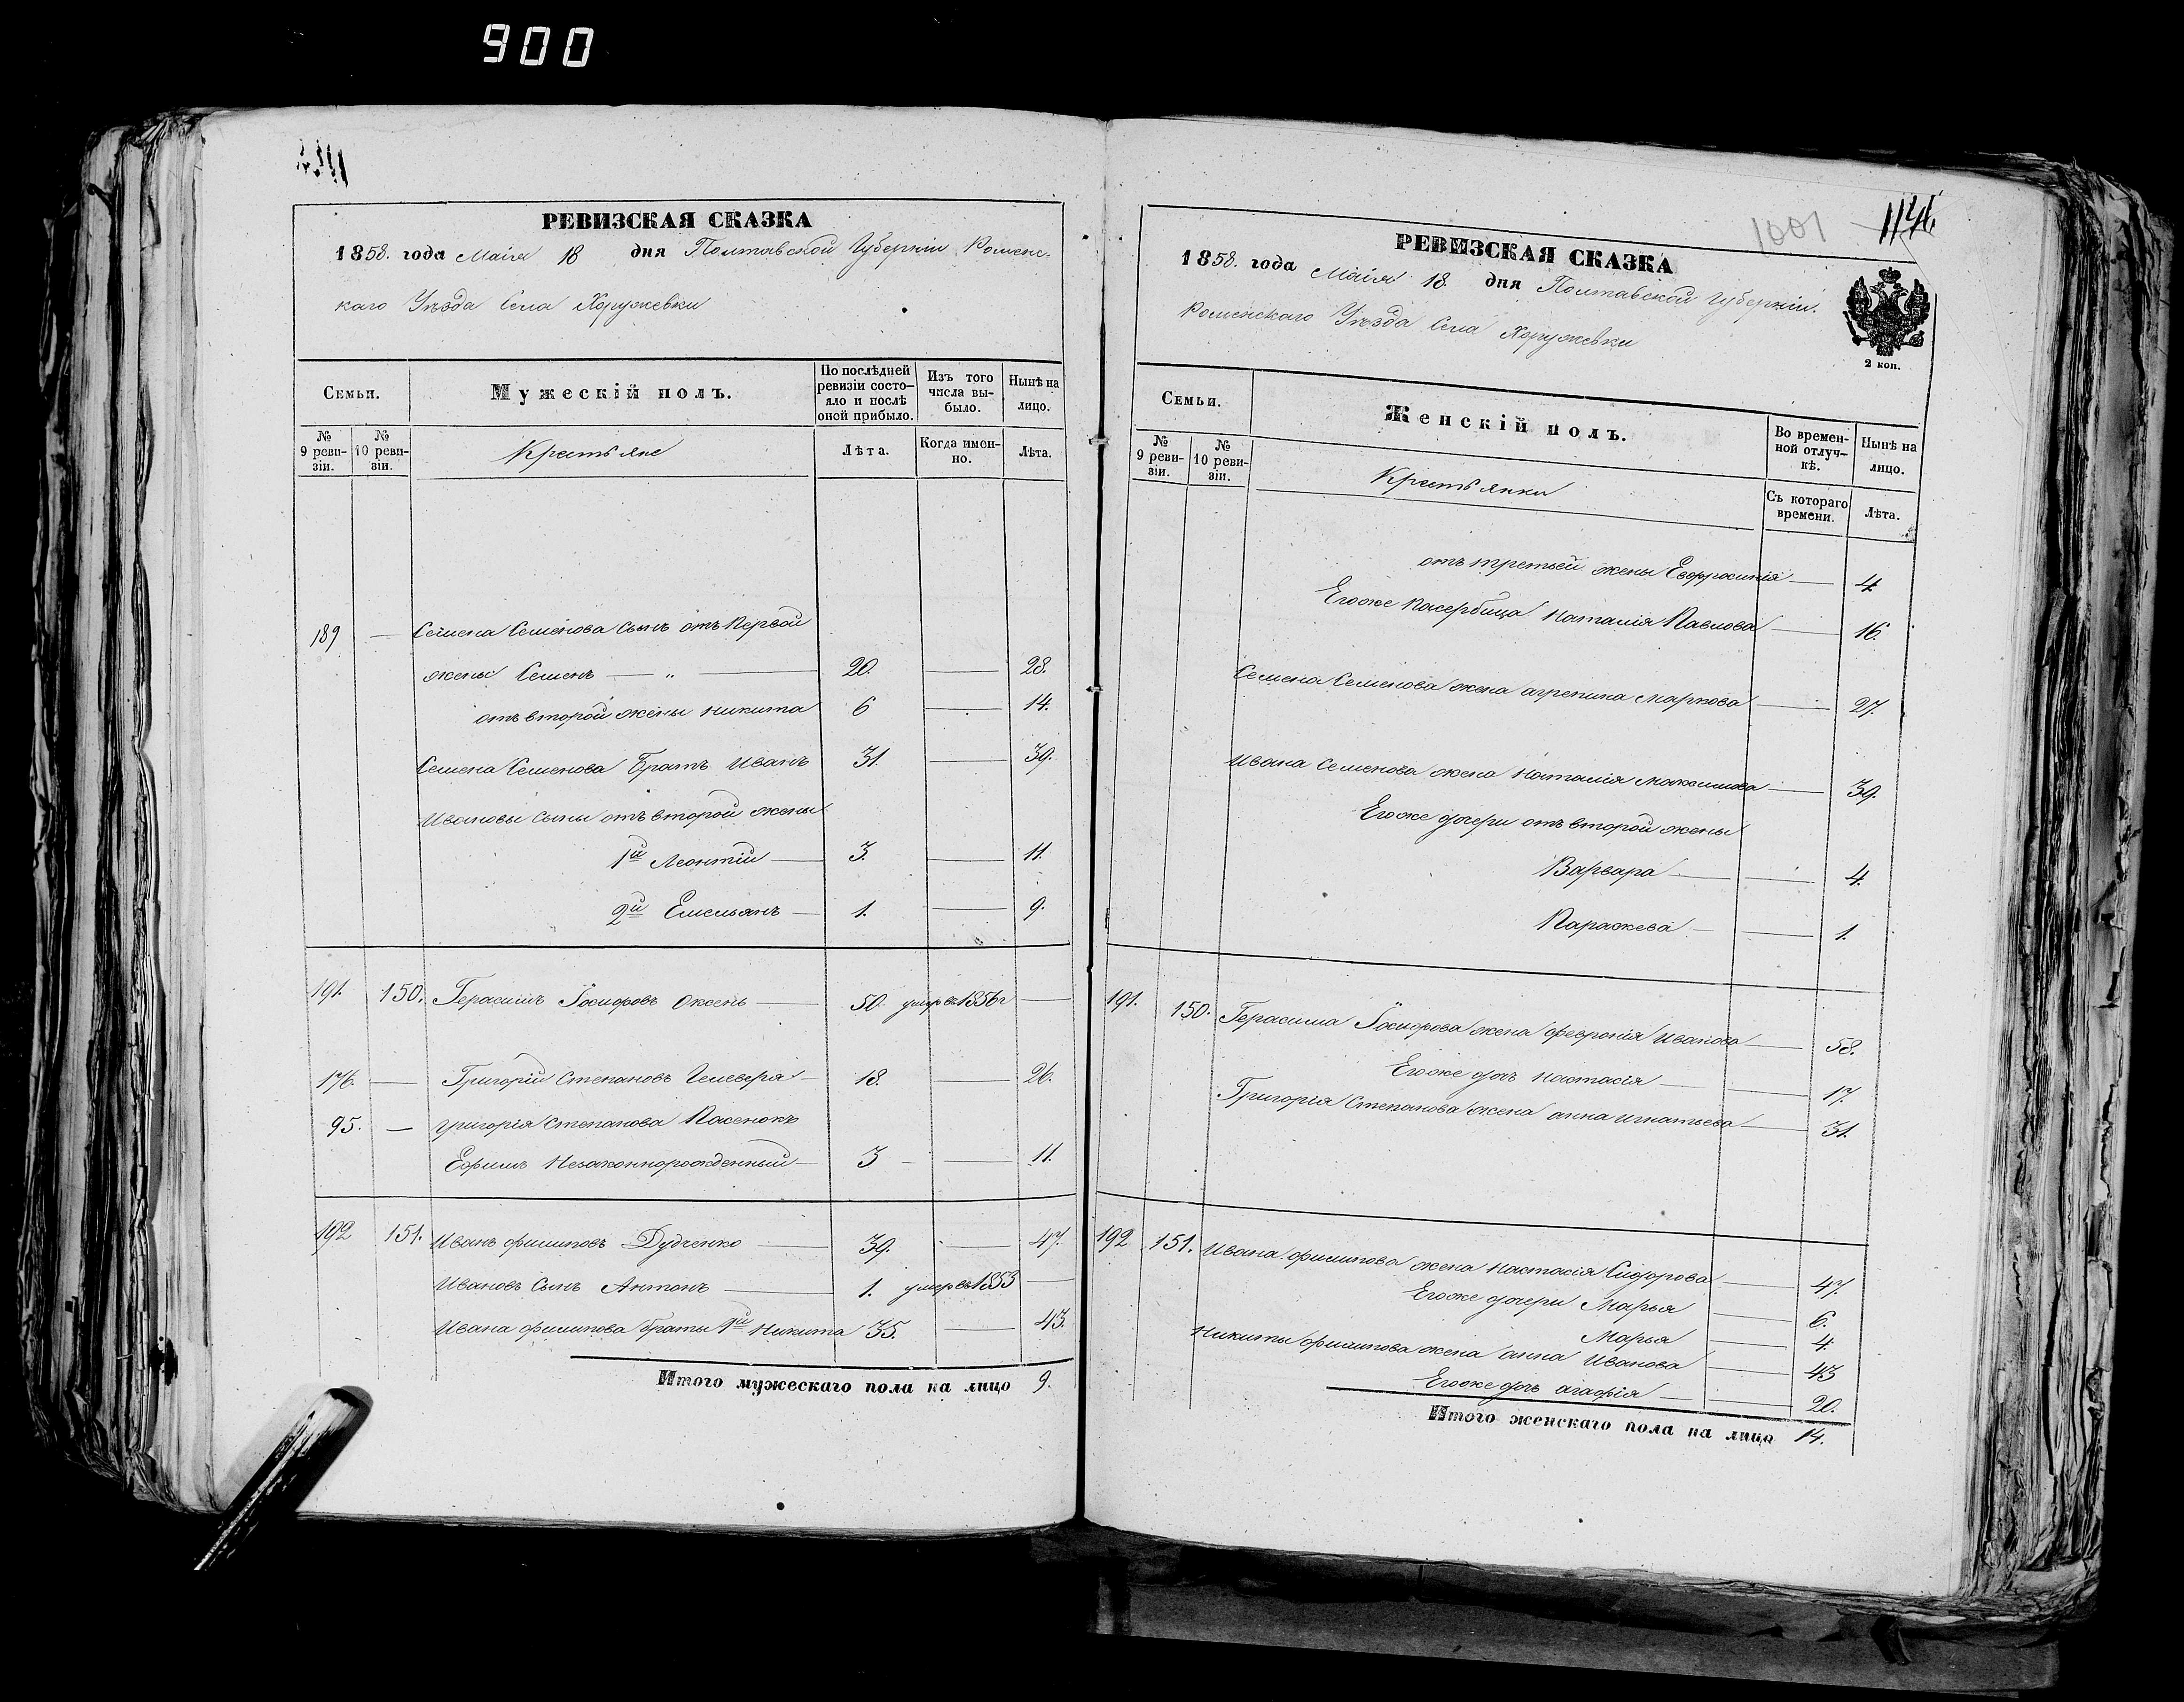 900
РЕВИЗСКАЯ СКАЗКА
1858. года Маія 18 дня Полтавской Губерніи Роменс-
каго Уѣзда Села Хоружевки
Семьи.
Мужескій полъ.
По послѣдней ревизіи состо-яло и послѣ оной прибыло.
Изъ того числа вы-было.
Нынѣ на лицо.
№ 9 реви-зіи.
№ 10 реви-зіи.
Крестьяне
Лѣта.
Когда имен-но.
Лѣта.
189 — Семена Семенова сынъ отъ первой
жены Семенъ — " — 20. — 28.
отъ второй жены Никита 6 — 14.
Семена Семенова братъ Иванъ 31. — 39.
Ивановы сыны отъ второй жены
1й Леонтій — 3. — 11.
2й Емельянъ — 1. — 9.
191. 150. Герасимъ Іосифовъ Оксень — 50. умеръ въ 1856 г —
176. — Григорій Степановъ Челевера — 18. — 26.
95. — Григорія Степанова пасенокъ
Ефимъ незаконнорожденный — 3 — 11.
192 151. Иванъ Филиповъ Дудченко — 39. — 47.
Ивановъ сынъ Антонъ — 1. умеръ въ 1853 —
Ивана Филипова браты 1й Никита 35. — 43.
Итого мужескаго пола на лицо 9.
1001
1146
РЕВИЗСКАЯ СКАЗКА
1858. года Маія 18. дня Полтавской Губерніи.
Роменскаго Уѣзда Села Хоружевки
2 коп.
Семьи.
Женскій полъ.
Во времен-ной отлуч-кѣ.
Нынѣ на лицо.
№ 9 реви-зіи.
№ 10 реви-зіи.
Крестьянки
Съ котораго времени.
Лѣта.
отъ третьей жены Евфросинія — 4.
Егоже пасербица Наталія Павлова — 16.
Семена Семенова жена Агрепина Маркова — 27.
Ивана Семенова жена Наталія Максимова — 39.
Егоже дочери отъ второй жены
Варвара — 4.
Параскева — 1.
191. 150. Герасима Іосифова жена Февронія Иванова — 58.
Егоже дочь Настасія — 17.
Григорія Степанова жена Анна Игнатьева — 31.
192 151. Ивана Филипова жена Настасія Сидорова — 47.
Егоже дочери Марья — 6.
Марья — 4.
Никиты Филипова жена Анна Иванова — 43
Егоже дочь Агафія — 20.
Итого женскаго пола на лицо 14.